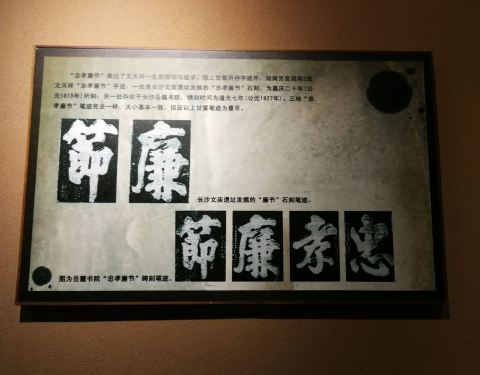 “忠孝廉节”表达了文天祥一生的信仰与追求。除上甘棠所存字迹外，湖南另发现有2处
文天祥“忠孝廉节”手迹，一处是长沙文庙遗址发掘的“忠孝廉节”石刻，为嘉庆二十年(公
元1815年)所刻；另一处存在于长沙岳麓书院，镌刻时间为道光七年(公元1827年)。三地“忠
孝廉节”笔迹完全一样，大小基本一致，但应以上甘棠笔迹为最早。
節 廉
长沙文庙遗址发掘的“廉节”石刻笔迹。
節 廉 孝 忠
图为岳麓书院“忠孝廉节”碑刻笔迹。